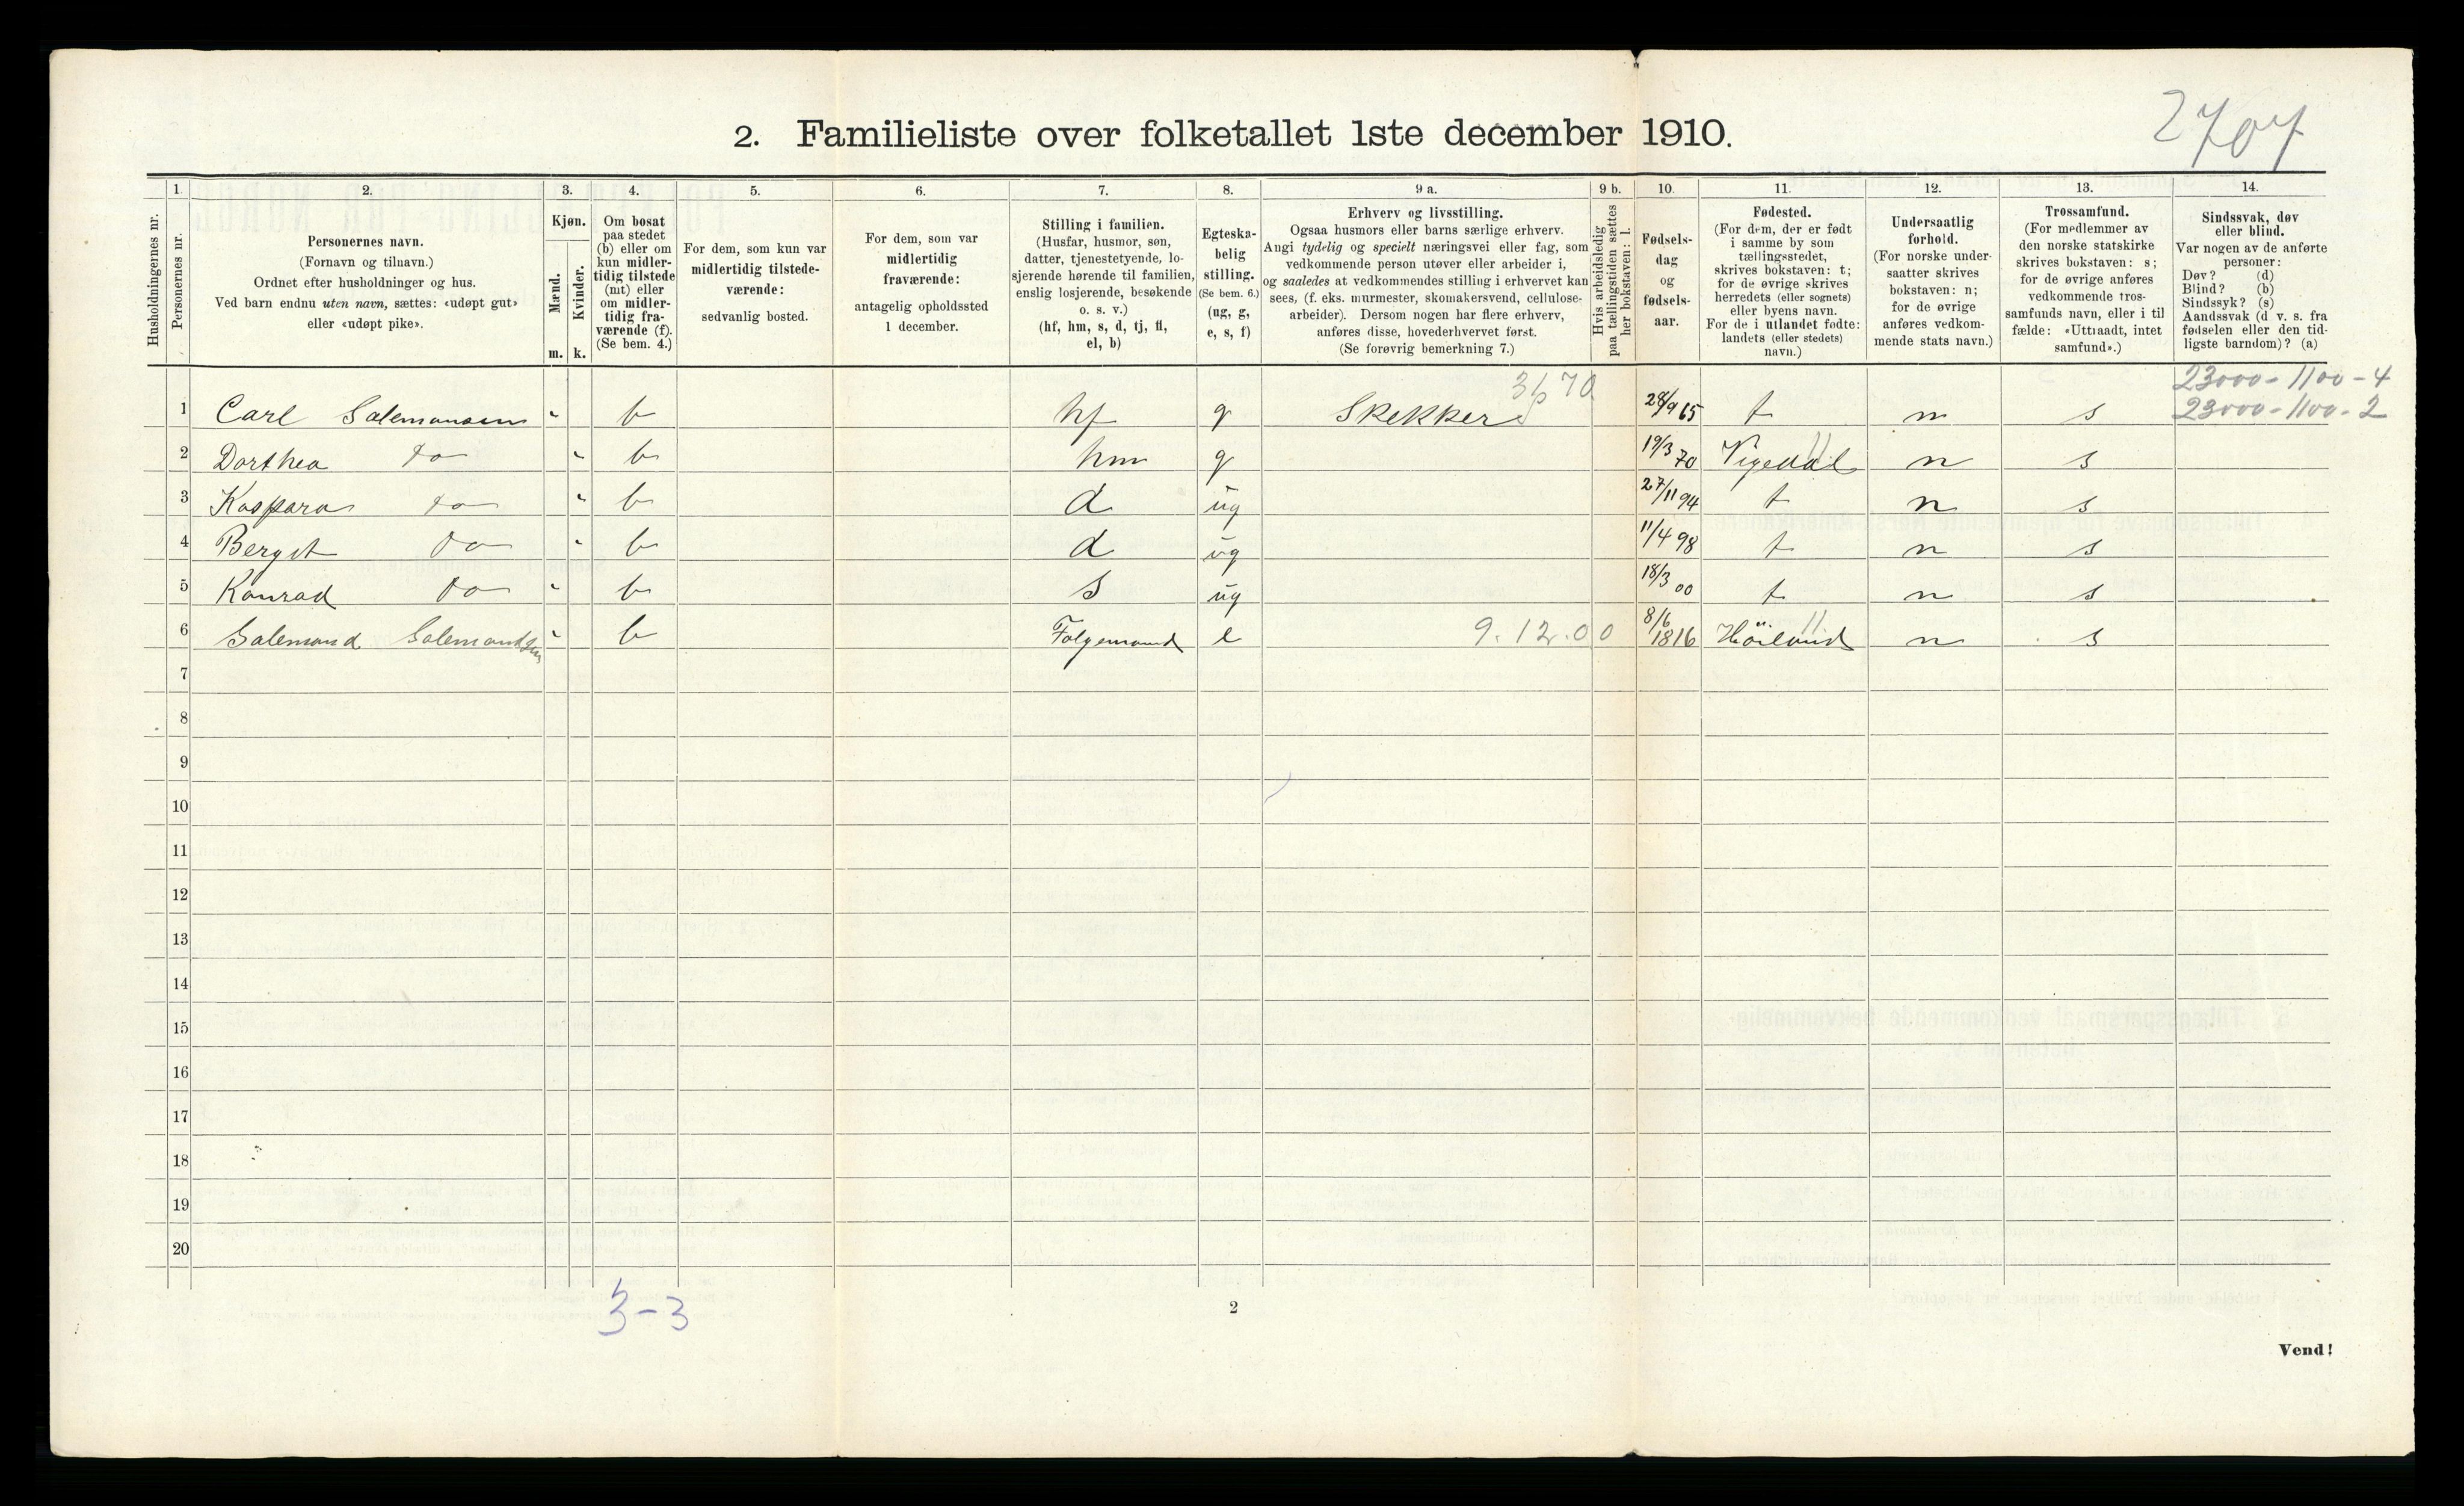 2707
2. Familieliste over folketallet 1ste december 1910.
Husholdningernes nr.
1.
Personernes nr.
2.
Personernes navn.
(Fornavn og tilnavn.)
Ordnet efter husholdninger og hus.
Ved barn endnu uten navn, sættes: «udøpt gut»
eller «udøpt pike».
3.
Kjøn.
Mænd.
m.
Kvinder.
k.
4.
Om bosat
paa stedet
(b) eller om
kun midler-
tidig tilstede
(mt) eller
om midler-
tidig fra-
værende (f).
(Se bem. 4.)
5.
For dem, som kun var
midlertidig tilstede-
værende:
sedvanlig bosted.
6.
For dem, som var
midlertidig
fraværende:
antagelig opholdssted
1 december.
7.
Stilling i familien.
(Husfar, husmor, søn,
datter, tjenestetyende, lo-
sjerende hørende til familien,
enslig losjerende, besøkende
o. s. v.)
(hf, hm, s, d, tj, fl,
el, b)
8.
Egteska-
belig
stilling.
(Se bem. 6.)
(ug, g,
e, s, f)
9 a.
Erhverv og livsstilling.
Ogsaa husmors eller barns særlige erhverv.
Angi tydelig og specielt næringsvei eller fag, som
vedkommende person utøver eller arbeider i,
og saaledes at vedkommendes stilling i erhvervet kan
sees, (f. eks. murmester, skomakersvend, cellulose-
arbeider). Dersom nogen har flere erhverv,
anføres disse, hovederhvervet først.
(Se forøvrig bemerkning 7.)
9 b.
Hvis arbeidsledig
paa tællingstiden sættes
her bokstaven: l.
10.
Fødsels-
dag
og
fødsels-
aar.
11.
Fødested.
(For dem, der er født
i samme by som
tællingsstedet,
skrives bokstaven: t;
for de øvrige skrives
herredets (eller sognets)
eller byens navn.
For de i utlandet fødte:
landets (eller stedets)
navn.)
12.
Undersaatlig
forhold.
(For norske under-
saatter skrives
bokstaven: n;
for de øvrige
anføres vedkom-
mende stats navn.)
13.
Trossamfund.
(For medlemmer av
den norske statskirke
skrives bokstaven: s;
for de øvrige anføres
vedkommende tros-
samfunds navn, eller i til
fælde: «Uttraadt, intet
samfund».)
14.
Sindssvak, døv
eller blind.
Var nogen av de anførte
personer:
Døv? (d)
Blind? (b)
Sindssyk? (s)
Aandssvak (d v. s. fra
fødselen eller den tid-
ligste barndom)? (a)
23000-1100-4
1 Carl Salemonsen b hf g Skekker 28/9 65 t n s 23000-1100-2
2 Dorthea do b hm g 19/3 70 Vigedal n s
3 Kaspara do b d ug 27/11 94 t n s
4 Bergit do b d ug 11/4 98 t n s
5 Konrad do b s ug 18/3 00 t n s
6 Salemond Salemondsen b Folgemand e 9.12.00 8/6 1816 Höiland n s
7
8
9
10
11
12
13
14
15
16
17
18
19
20
3-3
2
Vend!